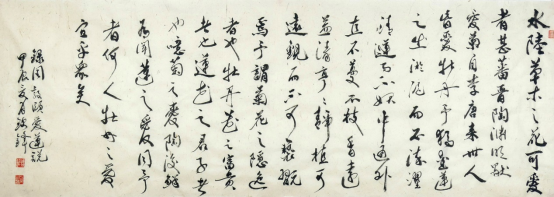 水陸草木之花可愛
者甚蕃晋陶渊明獨
愛菊自李唐来世人
皆愛牡丹予獨愛蓮
之出淤泥而不染濯
清漣而不妖中通外
直不蔓不枝香遠
益清亭亭静植可
遠觀而不可褻翫
焉予謂菊花之隐逸
者也牡丹花之富貴
者也蓮花之君子者
也噫菊之愛陶後鮮
有聞蓮之愛同予
者何人牡丹之愛
宜乎衆矣
録周敦頤愛蓮說
甲辰夏月